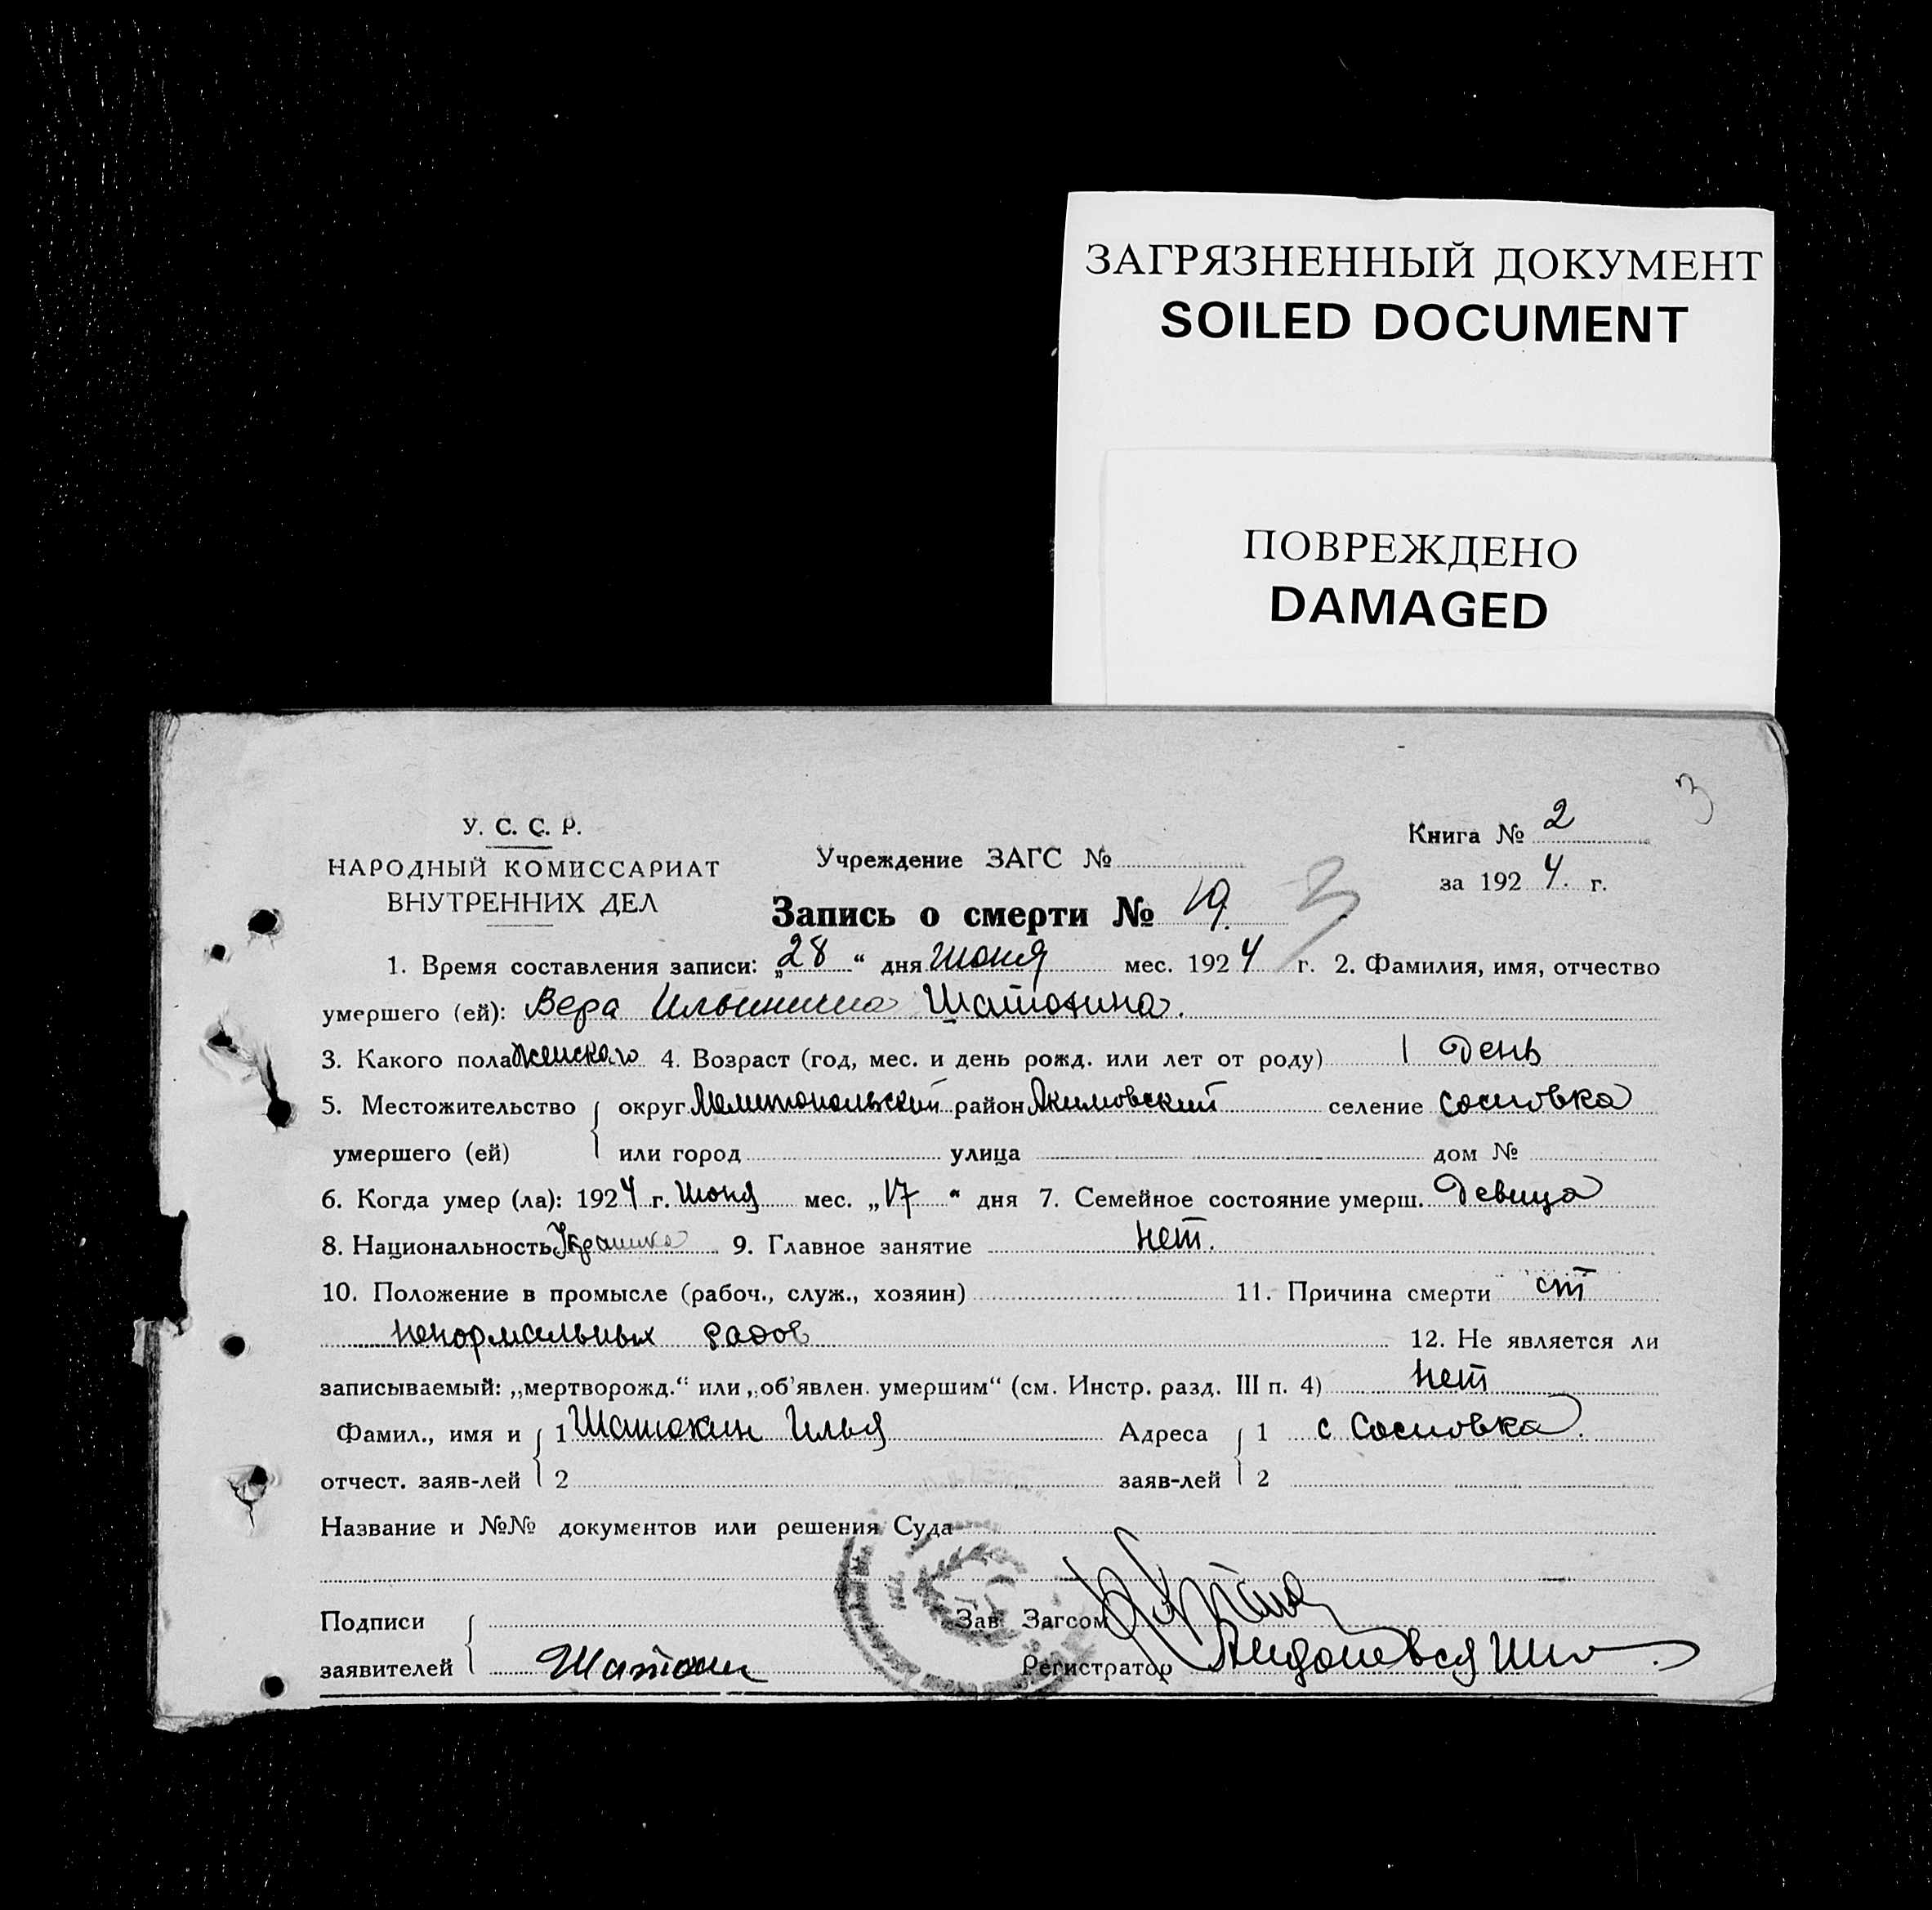 ЗАГРЯЗНЕННЫЙ ДОКУМЕНТ
SOILED DOCUMENT
ПОВРЕЖДЕНО
DAMAGED
3
У. С. С. Р.
НАРОДНЫЙ КОМИССАРИАТ
ВНУТРЕННИХ ДЕЛ
Учреждение ЗАГС №
Книга № 2
за 1924. г.
Запись о смерти № 19. 3
1. Время составления записи: „28“ дня июня мес. 1924 г. 2. Фамилия, имя, отчество
умершего (ей): Вера Ильинична Шатохина.
3. Какого пола женскаго 4. Возраст (год, мес. и день рожд. или лет от роду) 1 день
5. Местожительство округ Мелитопольский район Акимовский селение Сосновка
умершего (ей) или город улица дом №
6. Когда умер (ла): 1924 г. июня мес. „17“ дня 7. Семейное состояние умерш. Девица
8. Национальность 9. Главное занятие нет.
10. Положение в промысле (рабоч., служ., хозяин) 11. Причина смерти от
ненормальных родов 12. Не является ли
записываемый: „мертворожд.“ или „об'явлен. умершим“ (см. Инстр. разд. III п. 4) нет
Фамил., имя и 1 Шатохин Илья Адреса 1 с Сосновка.
отчест. заяв-лей 2 заяв-лей 2
Название и №№ документов или решения Суда
Подписи Зав. Загсом
заявителей Шатохин Регистратор